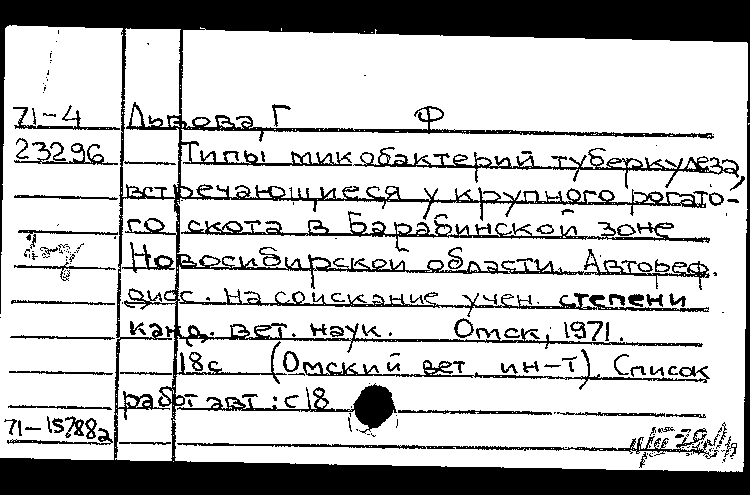 71-4 Львова, Г Ф
23296 Типы микобактерий туберкулеза,
встречающиеся у крупного рогато-
го скота в Барабинской зоне
Новосибирской области. Автореф.
дисс. на соискание учен. степени
канд. вет. наук. Омск, 1971.
18с (Омский вет. ин-т). Список
работ авт: с18
71-15788а